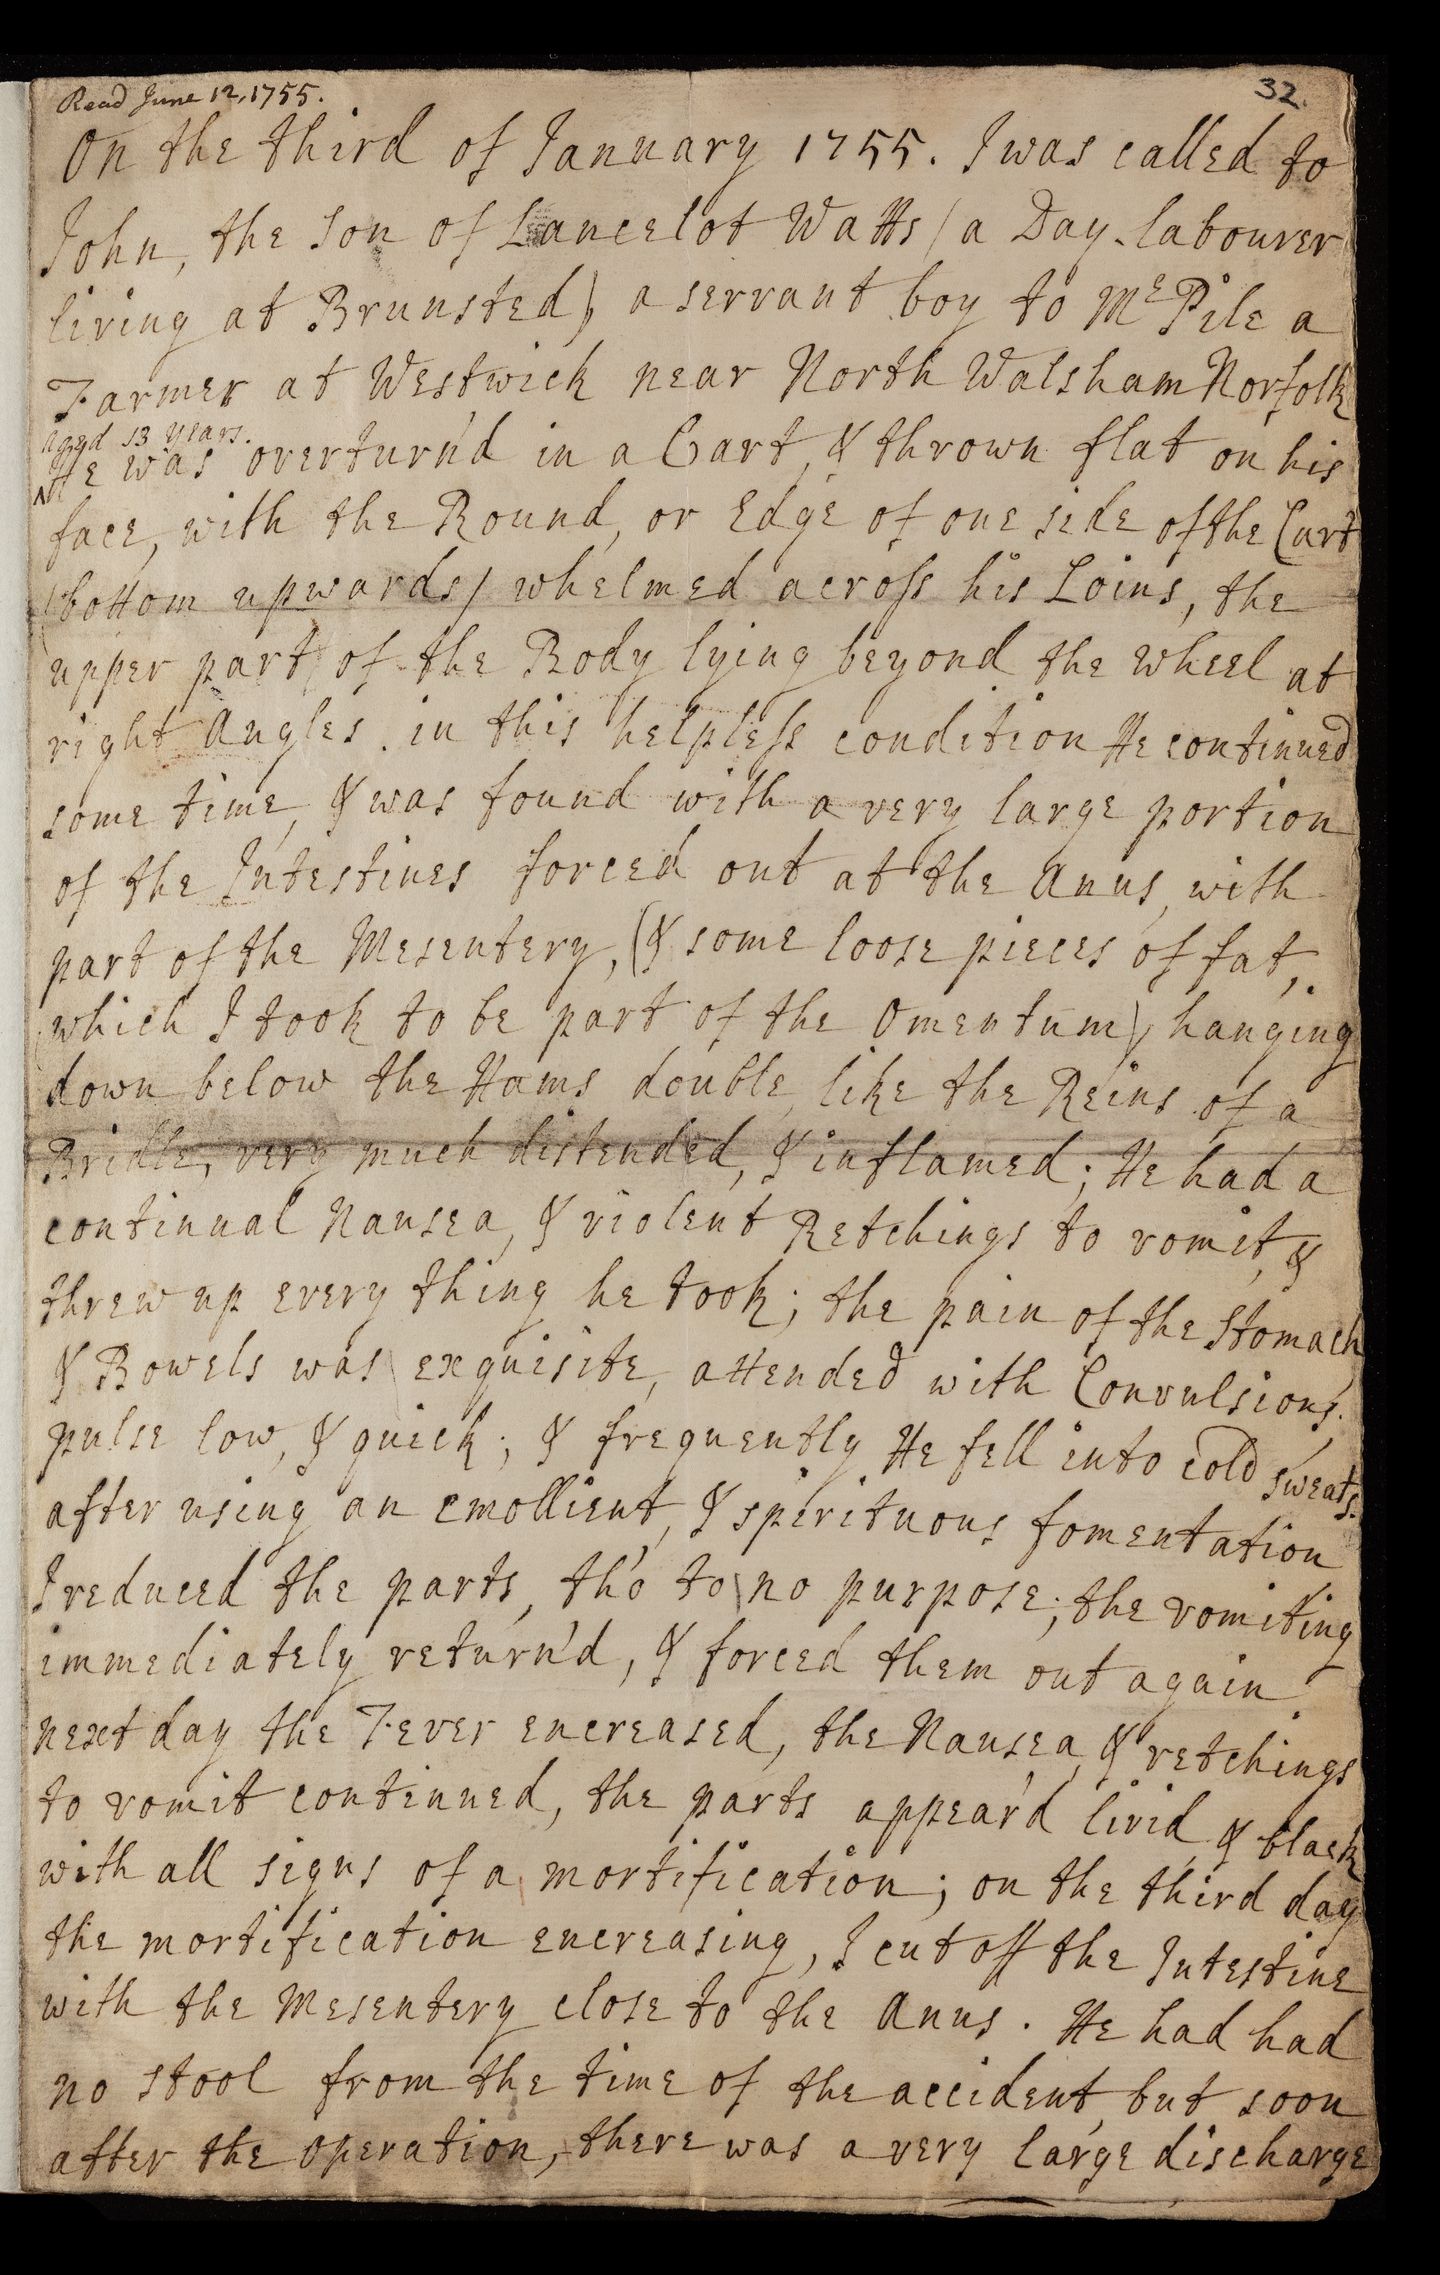 Read June 12, 1755.
32.
On the third of January 1755. I was called to
John, the son of Lancelot Watts (a Day-labourer
living at Brunsted) a servant boy to Mr Pile a
Farmer at Westwick near North Walsham Norfolk
aged 13 years.
^He was overturn'd in a Cart, & thrown flat on his
face, with the Round, or Edge of one side of the Cart
(bottom upwards) whelmed across his Loins, the
upper part of the Body lying beyond the wheel at
right Angles. in this helpless condition He continued
some time, & was found with a very large portion
of the Intestines forced out at the Anus, with
part of the Mesentery, (& some loose pieces of fat,
which I took to be part of the Omentum) hanging
down below the Hams double, like the Reins of a
Bridle, very much distended, & inflamed; He had a
continual Nausea, & violent Retchings to vomit, &
threw up every thing he took; the pain of the Stomach
& Bowels was exquisite, attended with Convulsions,
pulse low, & quick; & frequently He fell into cold sweats.
after using an emollient, & spirituous fomentation
I reduced the parts, tho' to no purpose; the vomiting
immediately return'd, & forced them out again
next day the Fever encreased, the Nausea, & retchings
to vomit continued, the parts appear'd livid, & black
with all signs of a mortification; on the third day
the mortification encreasing, I cut off the Intestine
with the Mesentery close to the Anus. He had had
no stool from the time of the accident, but soon
after the operation, there was a very large discharge